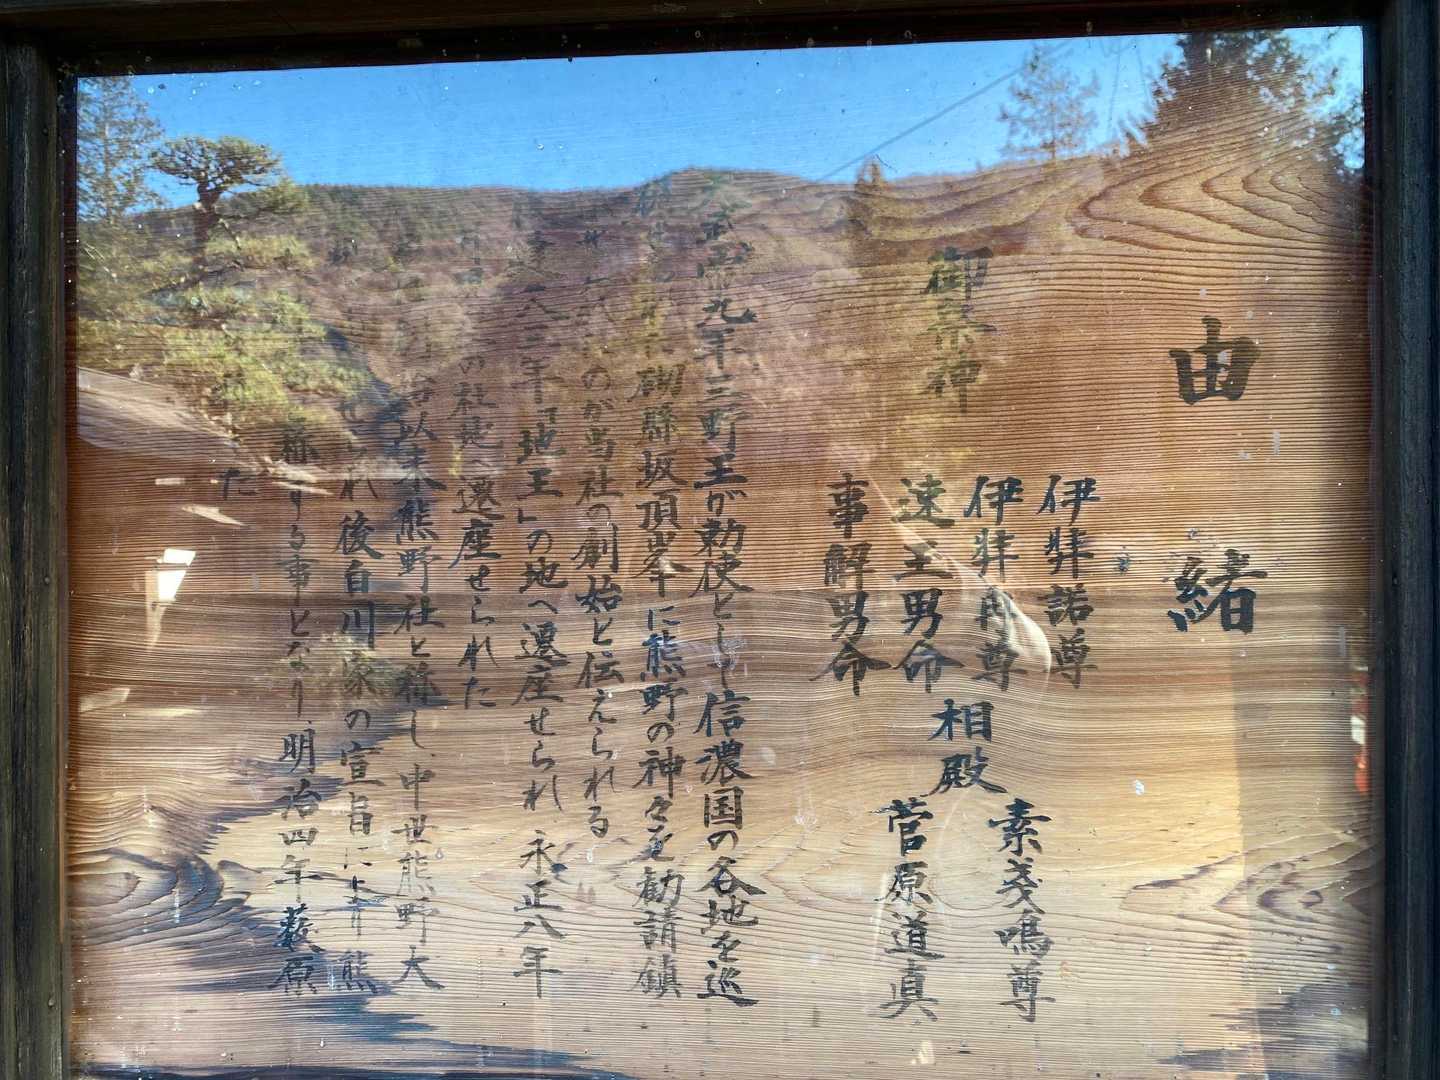 由緒
御祭神
伊弉諾尊
伊弉冉尊
速玉男命
事解男命
相殿
素戔嗚尊
菅原道真
天武帝九年三野王が勅使として信濃国の各地を巡
砌縣坂頂峯に熊野の神々を勧請鎮
のが当社の創始と伝えられる
八二年「地王」の地へ遷座せられ 永正八年
の社地へ遷座せられた
以来熊野社と称し、中世熊野大
せられ後白川家の宣旨により熊
称する事となり、明治四年薮原
た